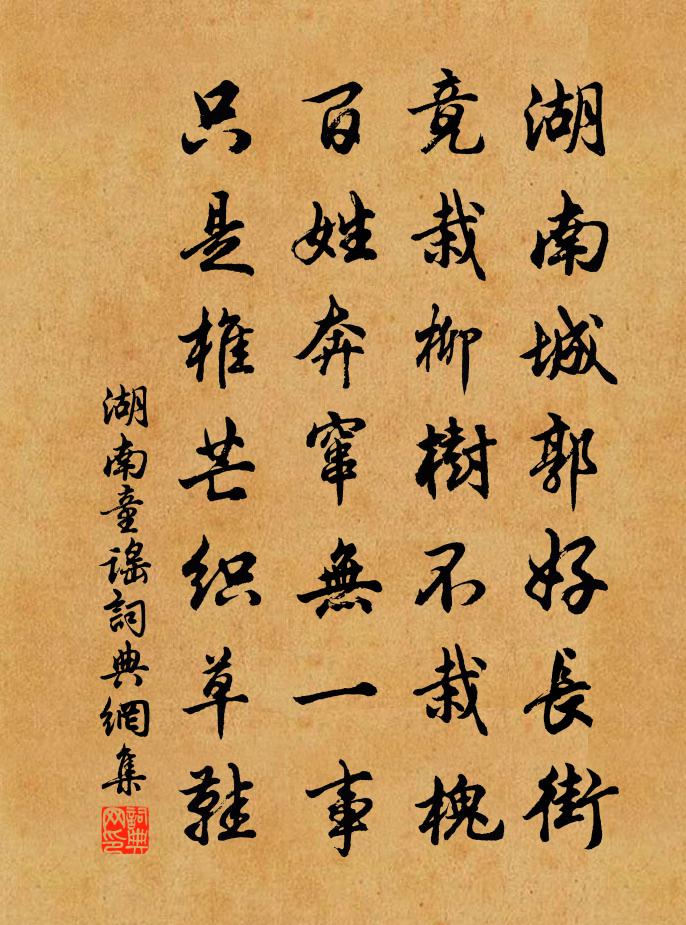 湖南城郭好長街
竟栽柳樹不栽槐
百姓奔窜無一事
只是椎芒织草鞋
湖南童谣詞典網集
詞典
网印